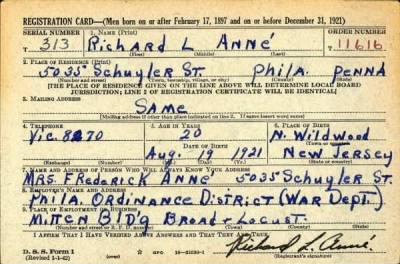 REGISTRATION CARD—(Men born on or after February 17, 1897 and on or before December 31, 1921)
SERIAL NUMBER 1. NAME (Print) ORDER NUMBER
T 313 Richard L Anné 11616
(First) (Middle) (Last)
2. PLACE OF RESIDENCE (Print)
5035 Schuyler St. Phila. Penna
(Number and street) (Town, township, village, or city) (County) (State)
[THE PLACE OF RESIDENCE GIVEN ON THE LINE ABOVE WILL DETERMINE LOCAL BOARD
JURISDICTION; LINE 2 OF REGISTRATION CERTIFICATE WILL BE IDENTICAL]
3. MAILING ADDRESS
Same
[Mailing address if other than place indicated on line 2. If same insert word same]
4. TELEPHONE 5. AGE IN YEARS 6. PLACE OF BIRTH
Vic. 8270 20 N. Wildwood
DATE OF BIRTH (Town or county)
Aug. 19 1921 New Jersey
(Exchange) (Number) (Mo.) (Day) (Yr.) (State or country)
7. NAME AND ADDRESS OF PERSON WHO WILL ALWAYS KNOW YOUR ADDRESS
Mrs. Frederick Anné 5035 Schuyler St.
8. EMPLOYER'S NAME AND ADDRESS
Phila. Ordinance District (War Dept.)
9. PLACE OF EMPLOYMENT OR BUSINESS
Mitten Bld'g Broad + Locust
(Number and street or R. F. D. number) (Town) (County) (State)
I AFFIRM THAT I HAVE VERIFIED ABOVE ANSWERS AND THAT THEY ARE TRUE.
D. S. S. Form 1 GPO 16—21630-1 Richard L. Anné
(Revised 1-1-42) (Registrant's signature)